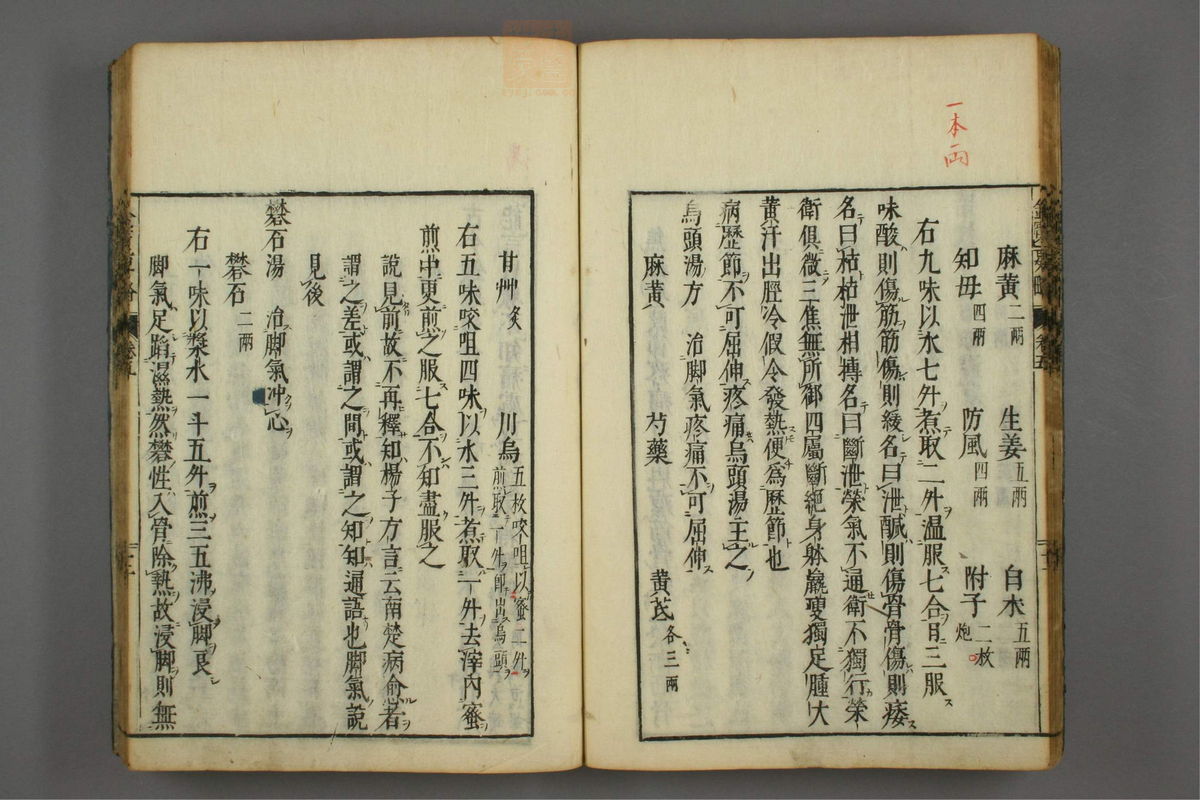 一本兩
麻黃二兩 生姜五兩 白朮五兩
知母四兩 防風四兩 附子二枚炮
右九味以水七升煮取二升温服七合日三服
味酸則傷筋筋傷則緩名曰泄鹹則傷骨骨傷則痿
名曰枯枯泄相摶名曰斷泄榮氣不通衛不獨行榮
衛俱微三焦無所御四屬斷絕身躰羸瘦獨足腫大
黃汗出脛冷假令發熱便為歷節也
病歷節不可屈伸疼痛烏頭湯主之
烏頭湯方 治脚氣疼痛不可屈伸
麻黃 芍藥 黃芪各三兩
甘艸炙 川烏五枚㕮咀以蜜二升煎取一升即出烏頭
右五味㕮咀四味以水三升煮取一升去滓內蜜
煎中更煎之服七合不知盡服之
說見前故不再釋知楊子方言云南楚病愈者
謂之差或謂之間或謂之知知通語也脚氣說
見後
礬石湯 治脚氣冲心
礬石二兩
右一味以漿水一斗五升煎三五沸浸脚良
脚氣足蹈濕熱然礬性入骨除熱故浸脚則無